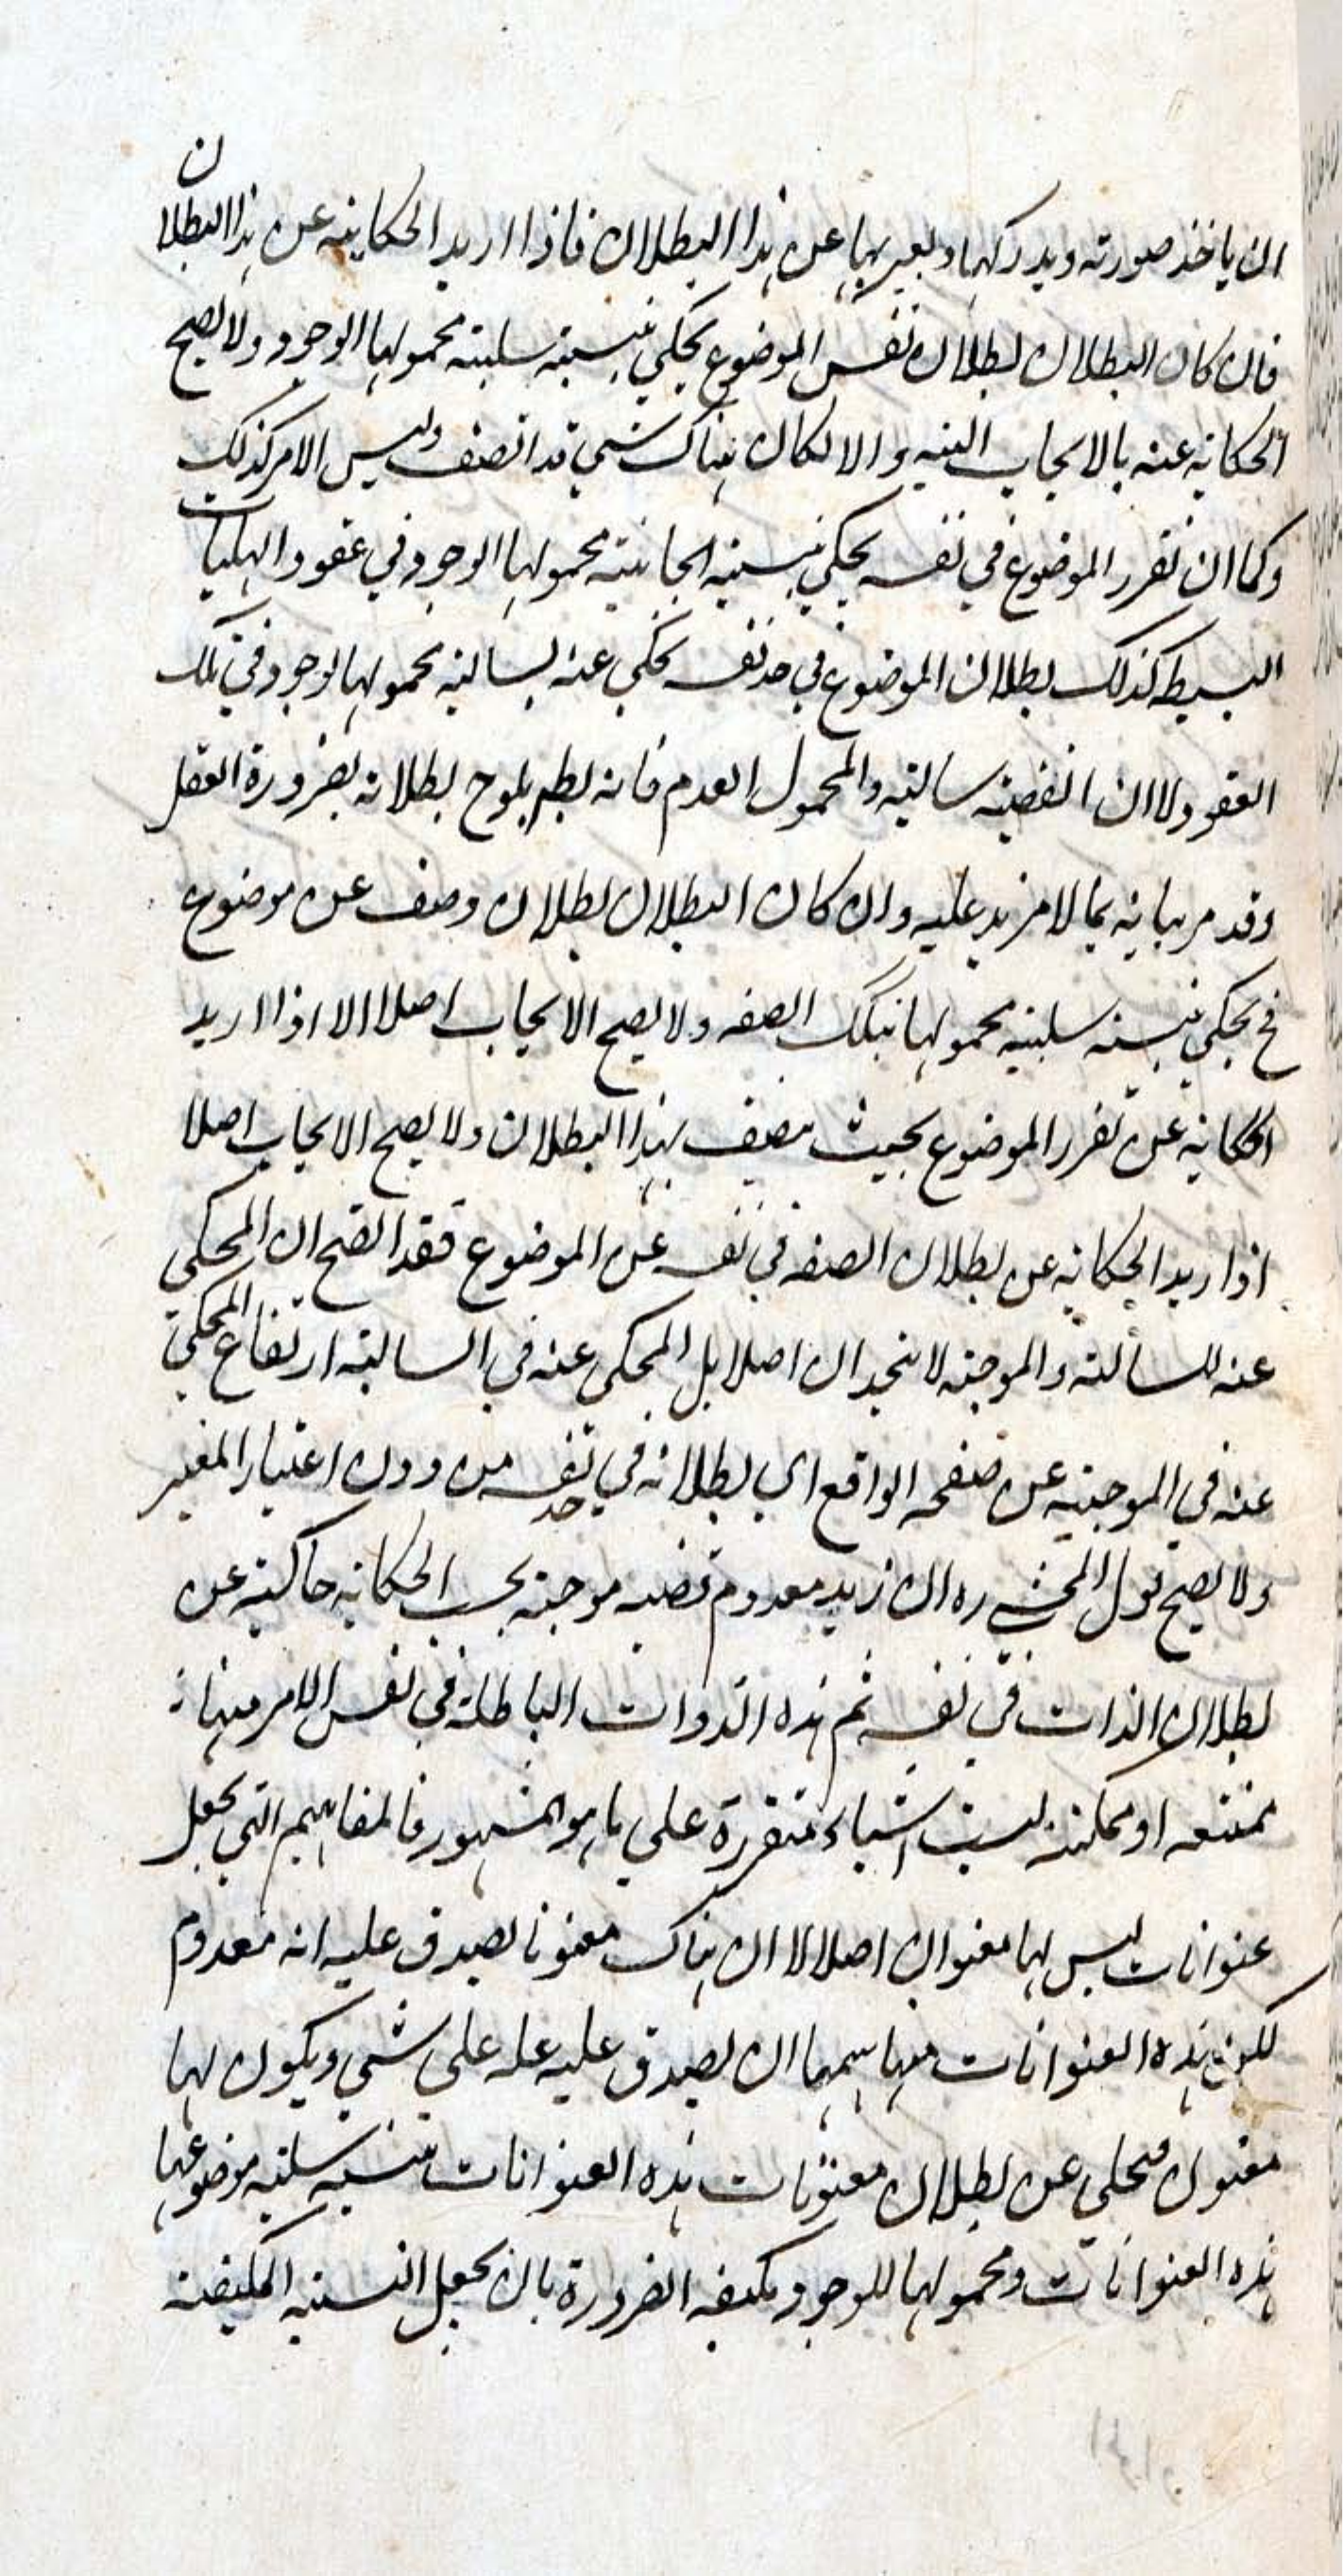 ان ياخذ صورته ويدركها ويعبر بها عن هذا البطلان فاذا اريد الحكاية عن هذا البطلان
فان كان البطلان بطلان نفس الموضوع يحكي بنسبة سلبية محمولها الوجود ولا يصح
الحكاية عنه بالايجاب البتة والا لكان هناك شيء قد اتصف وليس الامر كذلك
وكما ان تقرر الموضوع في نفسه يحكي بنسبة ايجابية محمولها الوجود في عقود الهليات
البسيطة كذلك بطلان الموضوع في حد نفسه يحكي عنه بسالبة محمولها الوجود في تلك
العقود لا ان القضية سالبة والمحمول العدم فانه يلوح بطلانه بضرورة العقل
وقد مر بيانه بما لا مزيد عليه وان كان البطلان بطلان وصف عن موضوع
فح يحكي بنسبة سلبية محمولها تلك الصفة ولا يصح الايجاب اصلا الا اذا اريد
الحكاية عن تقرر الموضوع بحيث يتصف بهذا البطلان ولا يصح الايجاب اصلا
اذا اريد الحكاية عن بطلان الصفة في نفسه عن الموضوع فقد اتضح ان المحكي
عنه للسالبة والموجبة لا يتحدان اصلا بل المحكي عنه في السالبة ارتفاع المحكي
عنه في الموجبة عن صفحة الواقع اي بطلانه في حد نفسه من دون اعتبار المعتبر
ولا يصح قول المحشي ره ان زيد معدوم قضية موجبة بحسب الحكاية حاكية عن
بطلان الذات في نفسه ثم هذه الذوات الباطلة في نفس الامر
ممتنعة او ممكنة ليست اشياء متقررة على ما هو المشهور فالمفاهيم التي يجعل
عنوانات ليس لها معنون اصلا لا ان هناك معنونا يصدق عليه انه معدوم
لكن هذه العنوانات ان يصدق عليه على شيء ويكون لها
معنون فيحكي عن بطلان معنونات هذه العنوانات بنسبة سلبية موضوعها
هذه العنوانات ومحمولها الوجود الضرورة بان يجعل النسبة